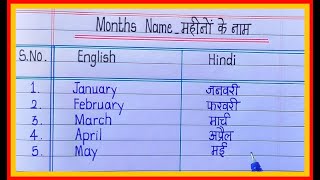 Months Name_महीनों के नाम
S.No. English Hindi
1. January जनवरी
2. February फरवरी
3. March मार्च
4. April अप्रैल
5. May मई